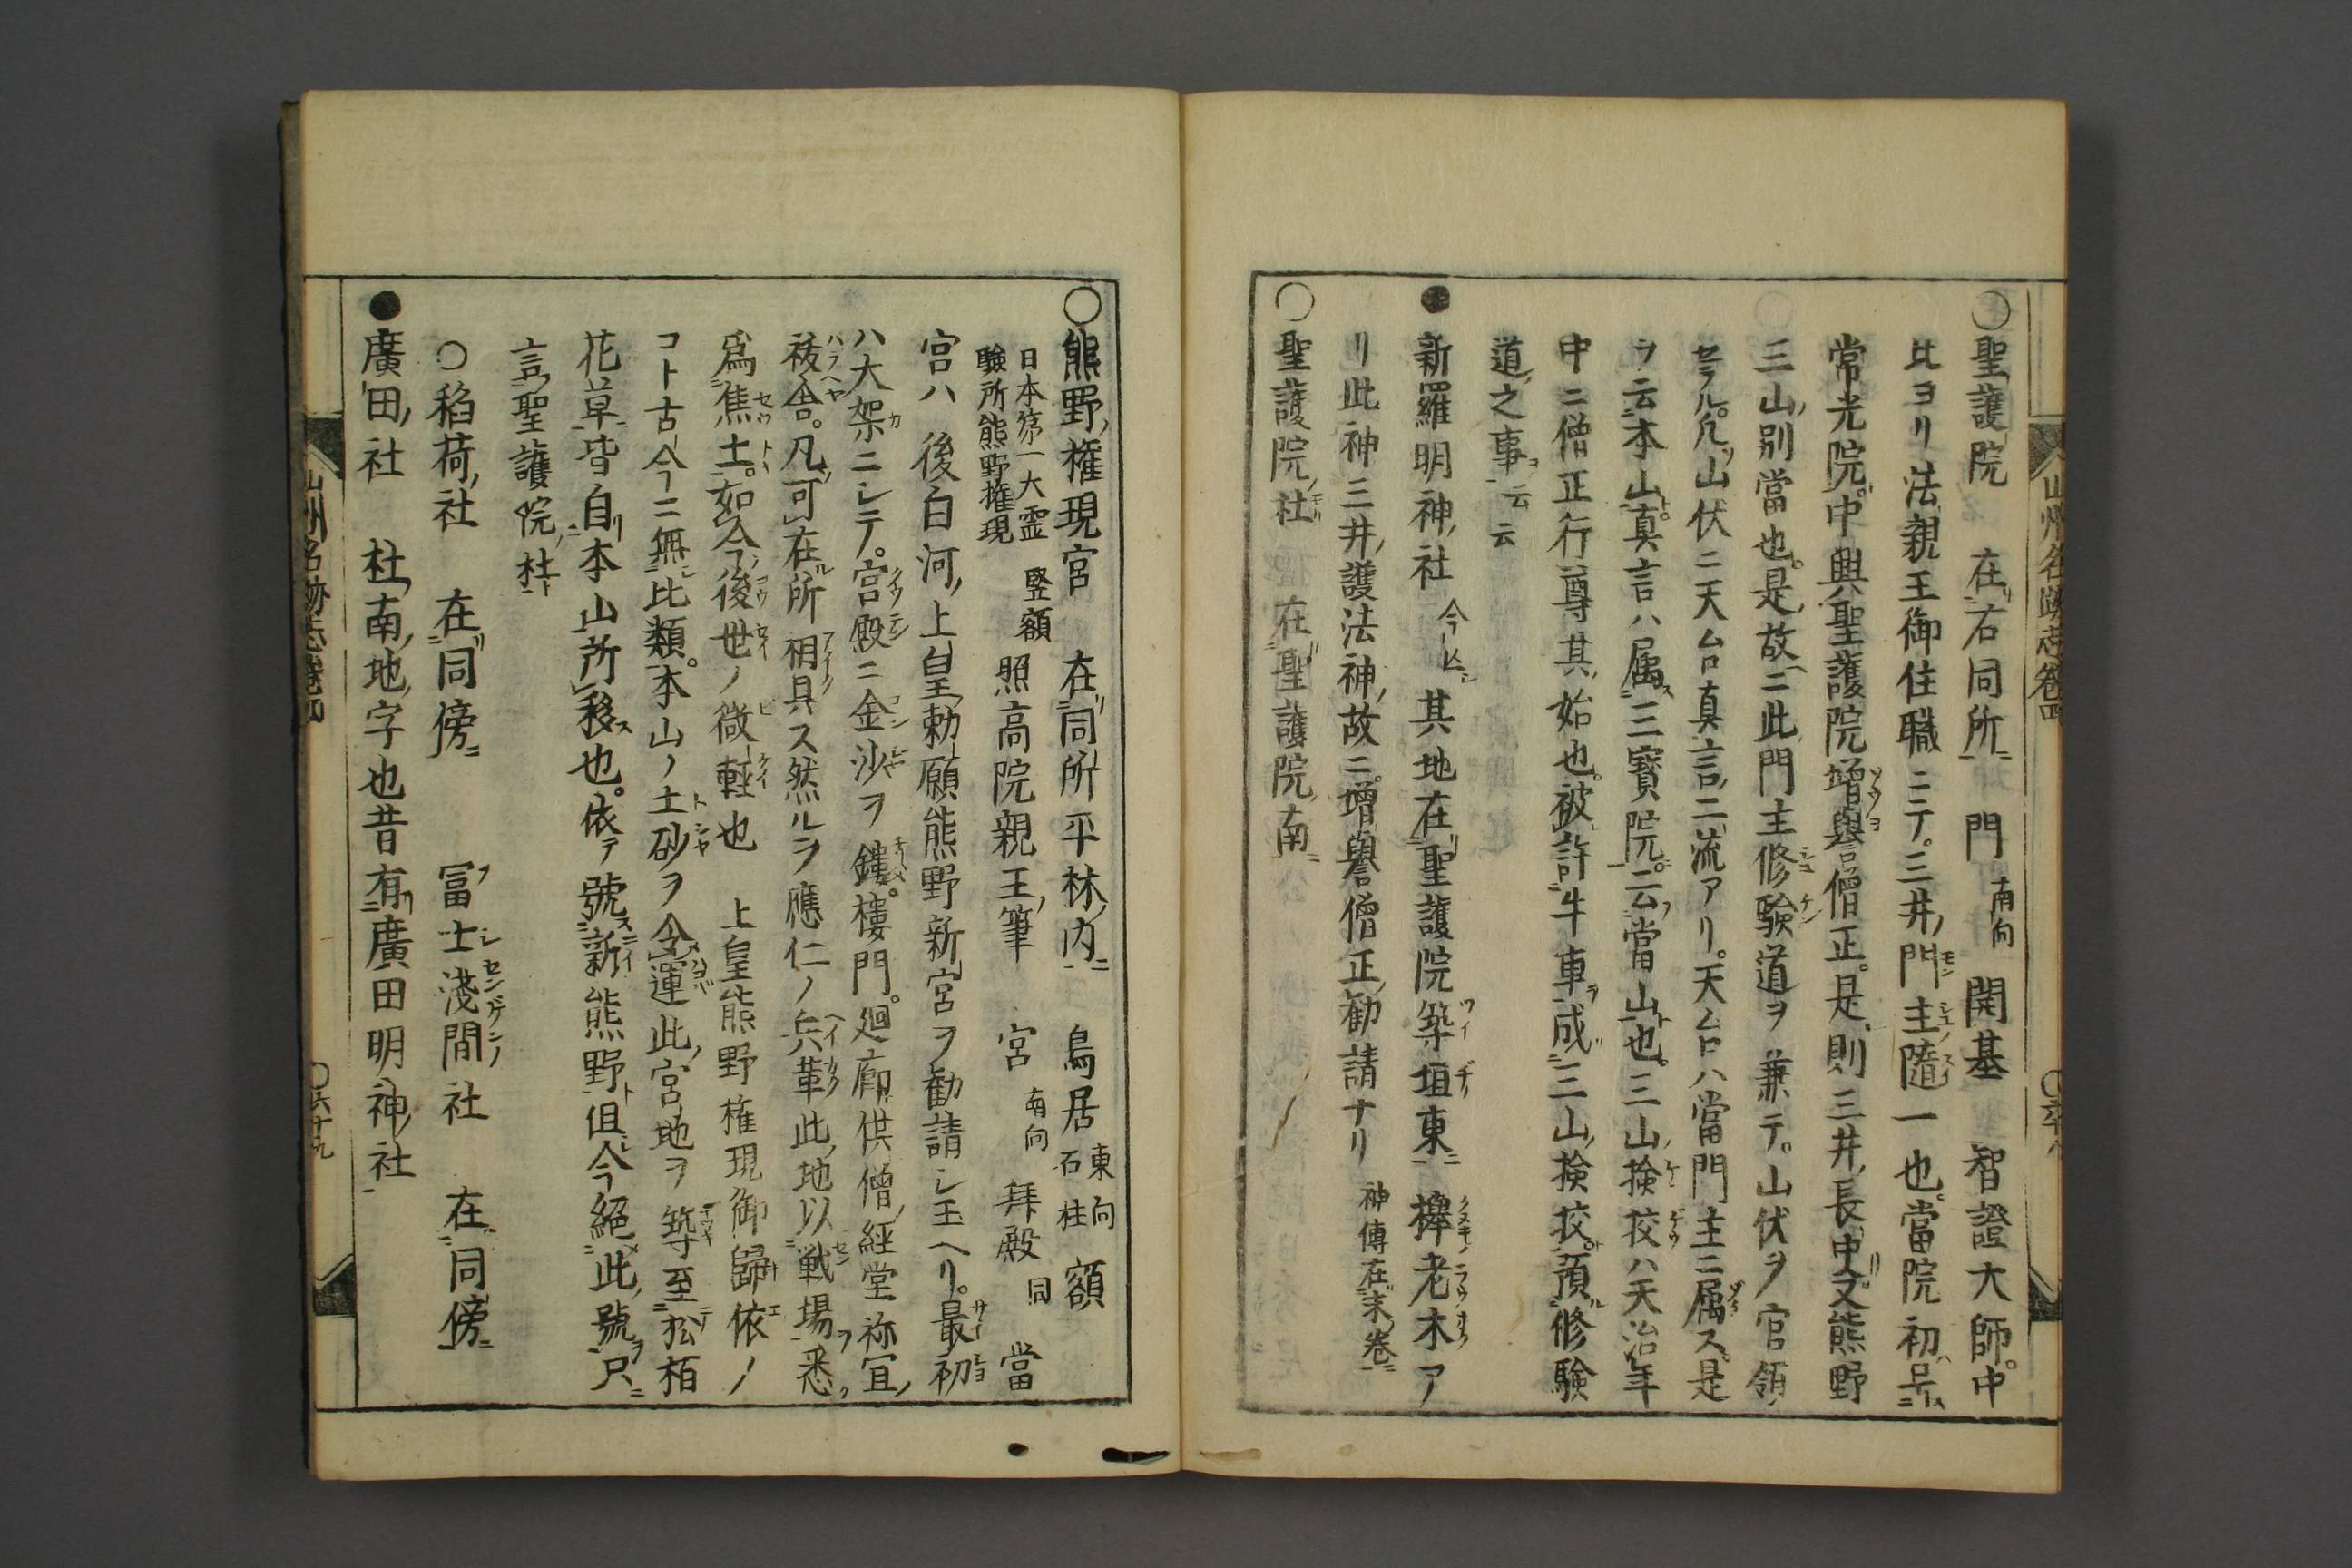 山州名跡志卷四
○聖護院 在右同所ニ 門 南向 開基 智證大師。中
比ヨリ法親王御住職ニテ。三井ノ門主隨一也。當院初号
常光院。中興聖護院增譽僧正。是則三井ノ長吏熊野
三山ノ別當也。是故ニ此門主修驗道ヲ兼テ。山伏ヲ官領
セラル。凡ソ山伏ニ天台真言ノ二流アリ。天台ハ當門主ニ属ス。是
ヲ云本山ト。真言ハ属三寳院ニ。云當山ト也。三山ノ検校ハ天治年
中ニ僧正行尊其始也。被許牛車ヲ成三山ノ検校ト。預修験
道之事ヲ云云
●新羅明神ノ社 今亡シ 其地在聖護院築垣ノ東ニ 櫸ノ老木ア
リ此神三井ノ護法神ノ故ニ。增譽僧正ノ勸請ナリ 神傳在末ノ卷ニ
○聖護院ノ杜 在聖護院ノ南ニ
○熊野ノ權現宮 在同所平林ノ内ニ 鳥居 東向 石柱 額
日本第一大霊
驗所熊野權現 竪額 照高院親王ノ筆 宮 南向 拜殿 同 當
宮ハ 後白河ノ上皇勅願熊野新宮ヲ勸請シ玉ヘリ。最初
ハ大架ニシテ。宮殿ニ金沙ヲ鏤。樓門。廻廊供僧ノ經堂祢宜ノ
祓舎。凡可在所相具ス然ルヲ應仁ノ兵革此ノ地以戰場悉ク
爲焦土。如今後世ノ微軽也 上皇熊野權現御歸依ノ
コト古今ニ無比類。本山ノ土砂ヲ令運此ノ宮地ヲ築至松栢
花草皆自本山所移也。依テ號新熊野ト但今絕此ノ號只
言聖護院ノ杜ト
○稻荷ノ社 在同傍ニ 冨士淺間ノ社 在同傍ニ
●廣田ノ社 杜ノ南ノ地ノ字也昔有廣田明神ノ社
山州名跡志卷四 ○六十九